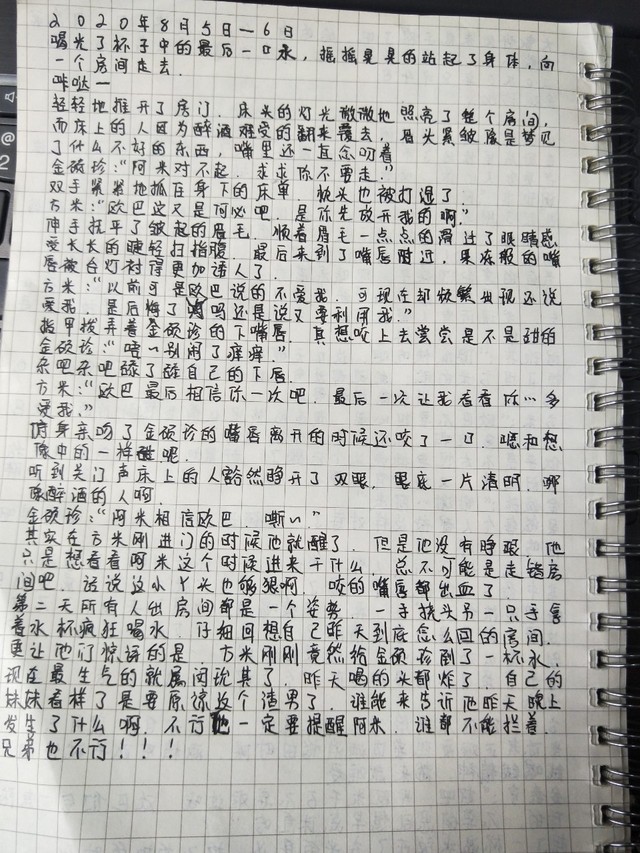 2020年8月5日—6日
喝光了杯子中的最后一口水，摇摇晃晃的站起了身体，向
一个房间走去.
咔哒一
轻轻地推开了房门. 床头的灯光微微地照亮了整个房间,
而床上的人因为醉酒难受的翻来覆去, 眉头紧皱像是梦见
了什么不好的东西, 嘴里还一直念叨着
金硕珍:“阿米对不起. 求求你不要走.”
双手紧紧地抓住身下的床单 枕头也被打湿了.
方米:“欧巴这又是何必吧. 是你先放开我的啊.”
伸手抚平了皱起的眉毛. 顺着眉毛一点点的滑过了眼睛感
受长长的睫轻扫指腹. 最后来到了嘴唇附近, 果冻般的嘴
唇被台灯衬得更加诱人了.
方米:“以前可是欧巴说的不爱我. 可现在却频繁出现还说
爱我. 是后悔了吗还是说又要利用我.”
指甲拨弄着金硕珍的下嘴唇. 真想咬上去尝尝是不是甜的
金硕珍:“唔~别闹了痒痒.”
杂吧杂吧舔了舔自己的下唇.
方米:“欧巴最后相信你一次吧. 最后一次让我看看你…多
爱我.”
俯身亲吻了金硕珍的嘴唇离开的时候还咬了一口. 嗯和想
像中的一样甜呢.
听到关门声床上的人豁然睁开了双眼. 眼底一片清明. 哪
像醉酒的人啊.
金硕珍:“阿米相信欧巴. 嘶~”
其实在方米刚进门的时候他就醒了. 但是他没有睁眼. 他
只是想看看阿米这个时候进来干什么. 总不可能是走错房
间吧. 话说这小丫头也够狠啊. 咬的嘴唇都出血了.
第二天所有人出房间都是一个姿势 一手挠头另一只手拿
着水杯疯狂喝水. 仔细回想自己昨天到底怎么回的房间.
更让他们惊讶的是 方米刚刚竟然给金硕珍倒了一杯水.
现在最生气的就属闵玧其了. 昨天喝的头都炸了. 自己的
妹妹看样子是要原谅这个渣男了. 谁能来告诉他昨天晚上
发生了什么啊. 不行他一定要提醒阿米. 谁都不能拦着.
兄弟也不行!!!